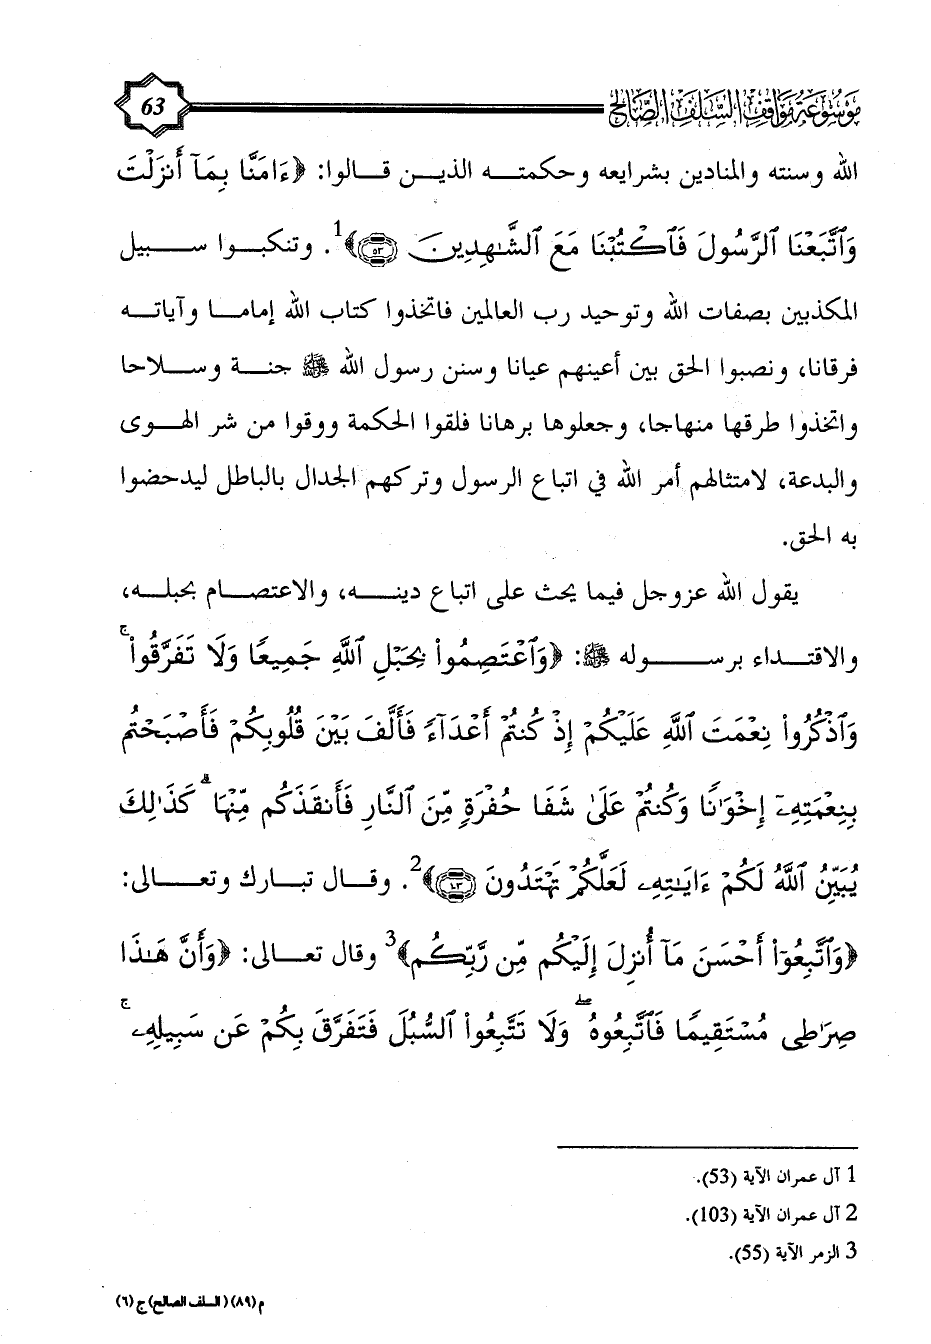 موسوعة مواقف السلف الصالح
63
الله وسنته والمنادين بشرايعه وحكمتـه الذيـن قـالوا: ﴿ءَامَنَّا بِمَآ أَنزَلْتَ
وَٱتَّبَعْنَا ٱلرَّسُولَ فَٱكْتُبْنَا مَعَ ٱلشَّٰهِدِينَ ﴿٥٣﴾﴾1. وتنكبـوا سـبيل
المكذبين بصفات الله وتوحيد رب العالمين فاتخذوا كتاب الله إمامـا وآياتـه
فرقانا، ونصبوا الحق بين أعينهم عيانا وسنن رسول الله ﷺ جنـة وسـلاحا
واتخذوا طرقها منهاجا، وجعلوها برهانا فلقوا الحكمة ووقوا من شر الهـوى
والبدعة، لامتثالهم أمر الله في اتباع الرسول وتركهم الجدال بالباطل ليدحضوا
به الحق.
يقول الله عزوجل فيما يحث على اتباع دينـه، والاعتصـام بحبلـه،
والاقتـداء برسـوله ﷺ: ﴿وَٱعْتَصِمُوا۟ بِحَبْلِ ٱللَّهِ جَمِيعًا وَلَا تَفَرَّقُوا۟ ۚ
وَٱذْكُرُوا۟ نِعْمَتَ ٱللَّهِ عَلَيْكُمْ إِذْ كُنتُمْ أَعْدَآءً فَأَلَّفَ بَيْنَ قُلُوبِكُمْ فَأَصْبَحْتُم
بِنِعْمَتِهِۦٓ إِخْوَٰنًا وَكُنتُمْ عَلَىٰ شَفَا حُفْرَةٍ مِّنَ ٱلنَّارِ فَأَنقَذَكُم مِّنْهَا ۗ كَذَٰلِكَ
يُبَيِّنُ ٱللَّهُ لَكُمْ ءَايَٰتِهِۦ لَعَلَّكُمْ تَهْتَدُونَ ﴿١٠٣﴾﴾2. وقـال تبـارك وتعـالى:
﴿وَٱتَّبِعُوٓا۟ أَحْسَنَ مَآ أُنزِلَ إِلَيْكُم مِّن رَّبِّكُم﴾3 وقال تعـالى: ﴿وَأَنَّ هَٰذَا
صِرَٰطِى مُسْتَقِيمًا فَٱتَّبِعُوهُ ۖ وَلَا تَتَّبِعُوا۟ ٱلسُّبُلَ فَتَفَرَّقَ بِكُمْ عَن سَبِيلِهِۦ ۚ
1 آل عمران الآية (53).
2 آل عمران الآية (103).
3 الزمر الآية (55).
م (٨٩) (السلف الصالح) ج (٦)